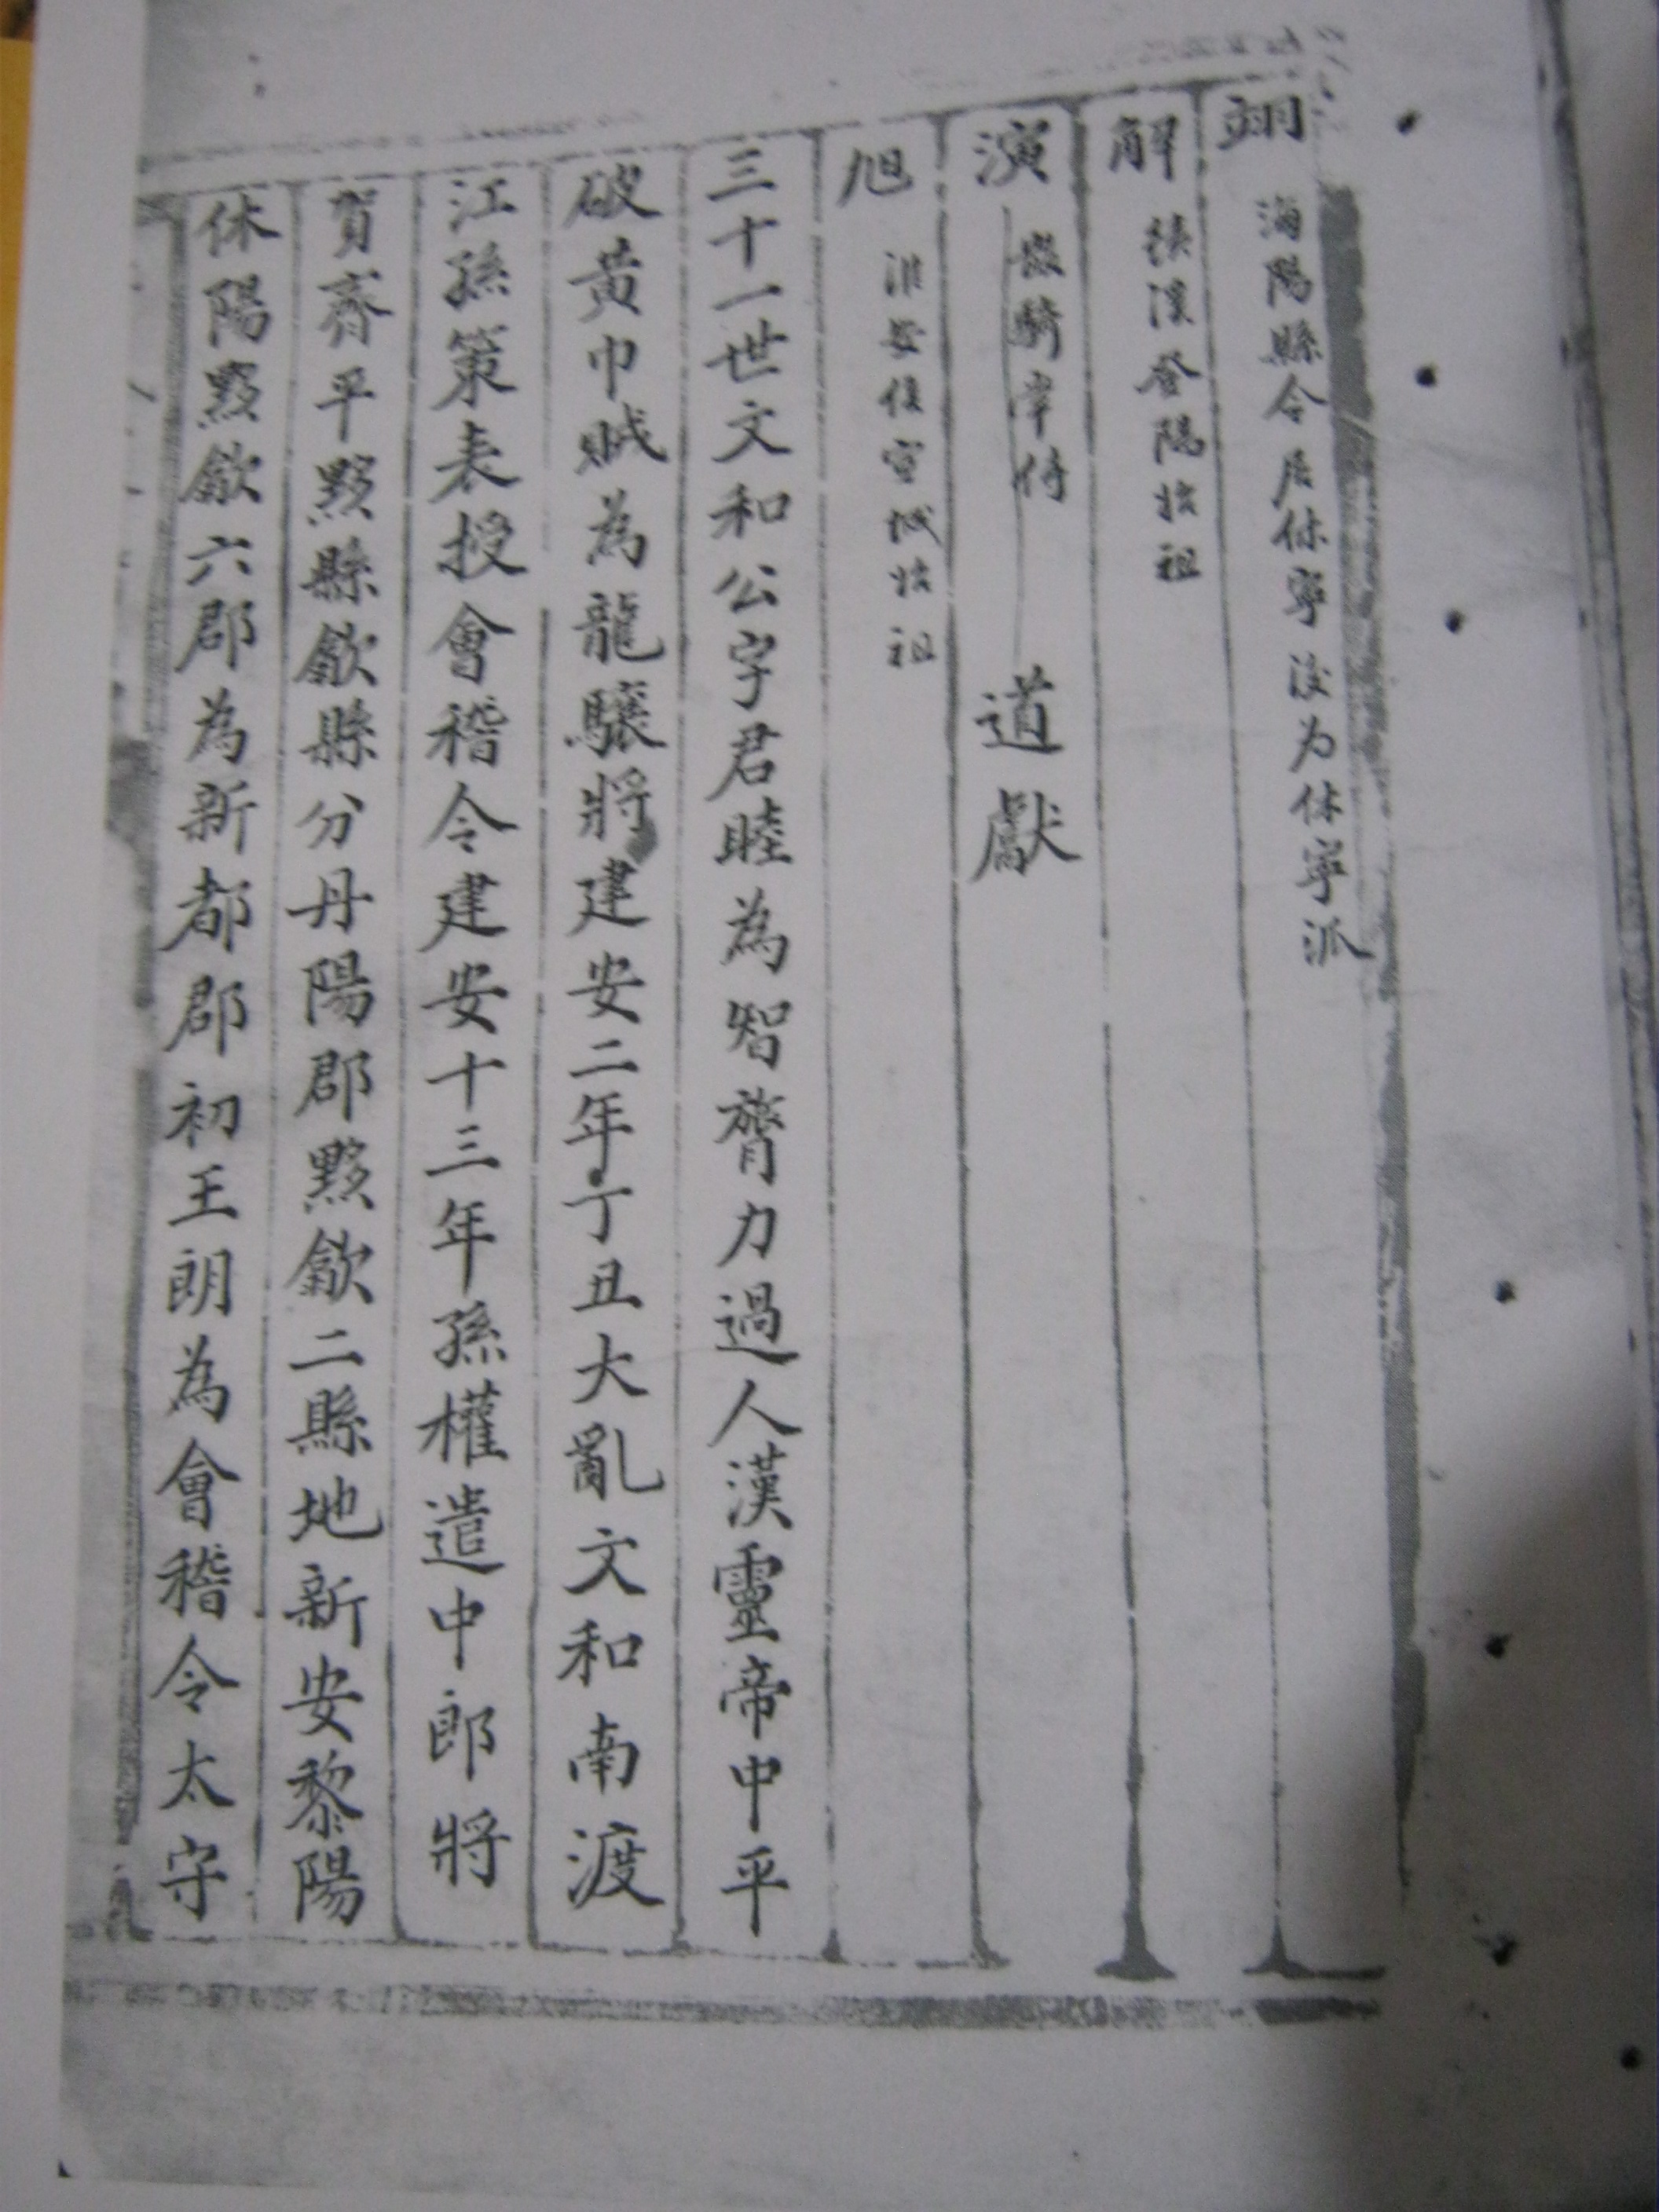 翊 海陽縣令居休寧後为休寧派
解 績溪登陽始祖
演 散騎常侍 道獻
旭 淮安侯宣城始祖
三十一世文和公字君睦為智膂力過人漢靈帝中平
破黃巾賊為龍驤將建安二年丁丑大亂文和南渡
江孫策表授會稽令建安十三年孫權遣中郎將
賀齊平黟縣歙縣分丹陽郡黟歙二縣地新安黎陽
休陽黟歙六郡為新都郡郡初王朗為會稽令太守